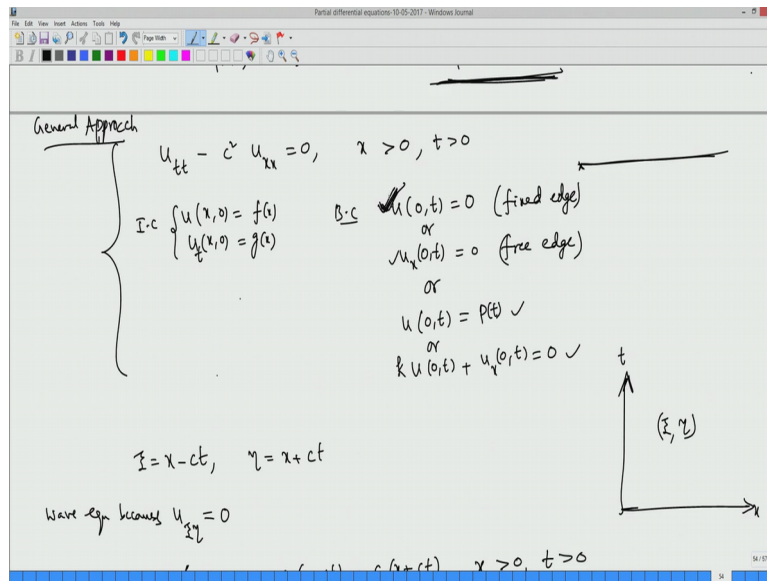 Partial differential equations-10-05-2017 - Windows Journal
File Edit View Insert Actions Tools Help
Page Width
B I
General Approach
u_tt - c² u_xx = 0, x > 0, t > 0
I.C { u(x,0) = f(x)
u_t(x,0) = g(x)
B.C u(0,t) = 0 (fixed edge)
or
u_x(0,t) = 0 (free edge)
or
u(0,t) = p(t) ✓
or
k u(0,t) + u_x(0,t) = 0 ✓
t
(ξ, η)
x
ξ = x - ct, η = x + ct
wave eqn becomes u_ξη = 0
(x+ct) x > 0, t > 0
54 / 57
54